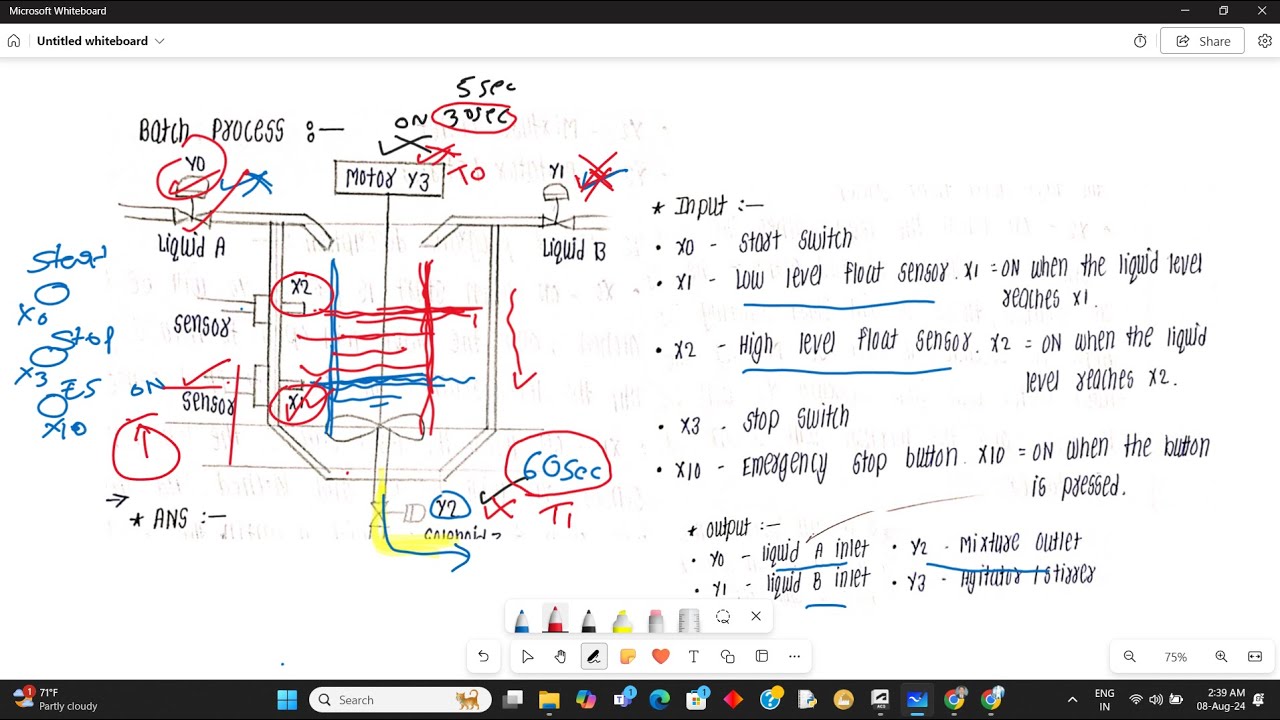 Microsoft Whiteboard
Untitled whiteboard
Share
5 sec
ON 30sec
Batch Process :—
Y0
Motor Y3
T0
Y1
Liquid A
Liquid B
Start
X0
Stop
X3
ES
X10
X2
sensor
ON
sensor
X1
60sec
Y2
T1
* ANS :—
* Input :—
• X0 - Start switch
• X1 - Low level float sensor. X1 = ON when the liquid level
reaches X1.
• X2 - High level float sensor. X2 = ON when the liquid
level reaches X2.
• X3 - Stop switch
• X10 - Emergency stop button. X10 = ON when the button
is pressed.
* Output :—
• Y0 - liquid A inlet • Y2 - Mixture outlet
• Y1 - liquid B inlet • Y3 - Agitator / Stirrer
75%
1
71°F
Partly cloudy
Search
ENG
IN
2:39 AM
08-Aug-24